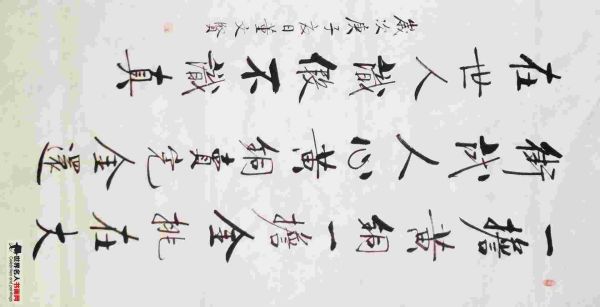 一擔黃銅一擔金挑在大
街試人心黃銅賣完金還
在世人識假不識真
歲次庚子日董文
世界名人书画网